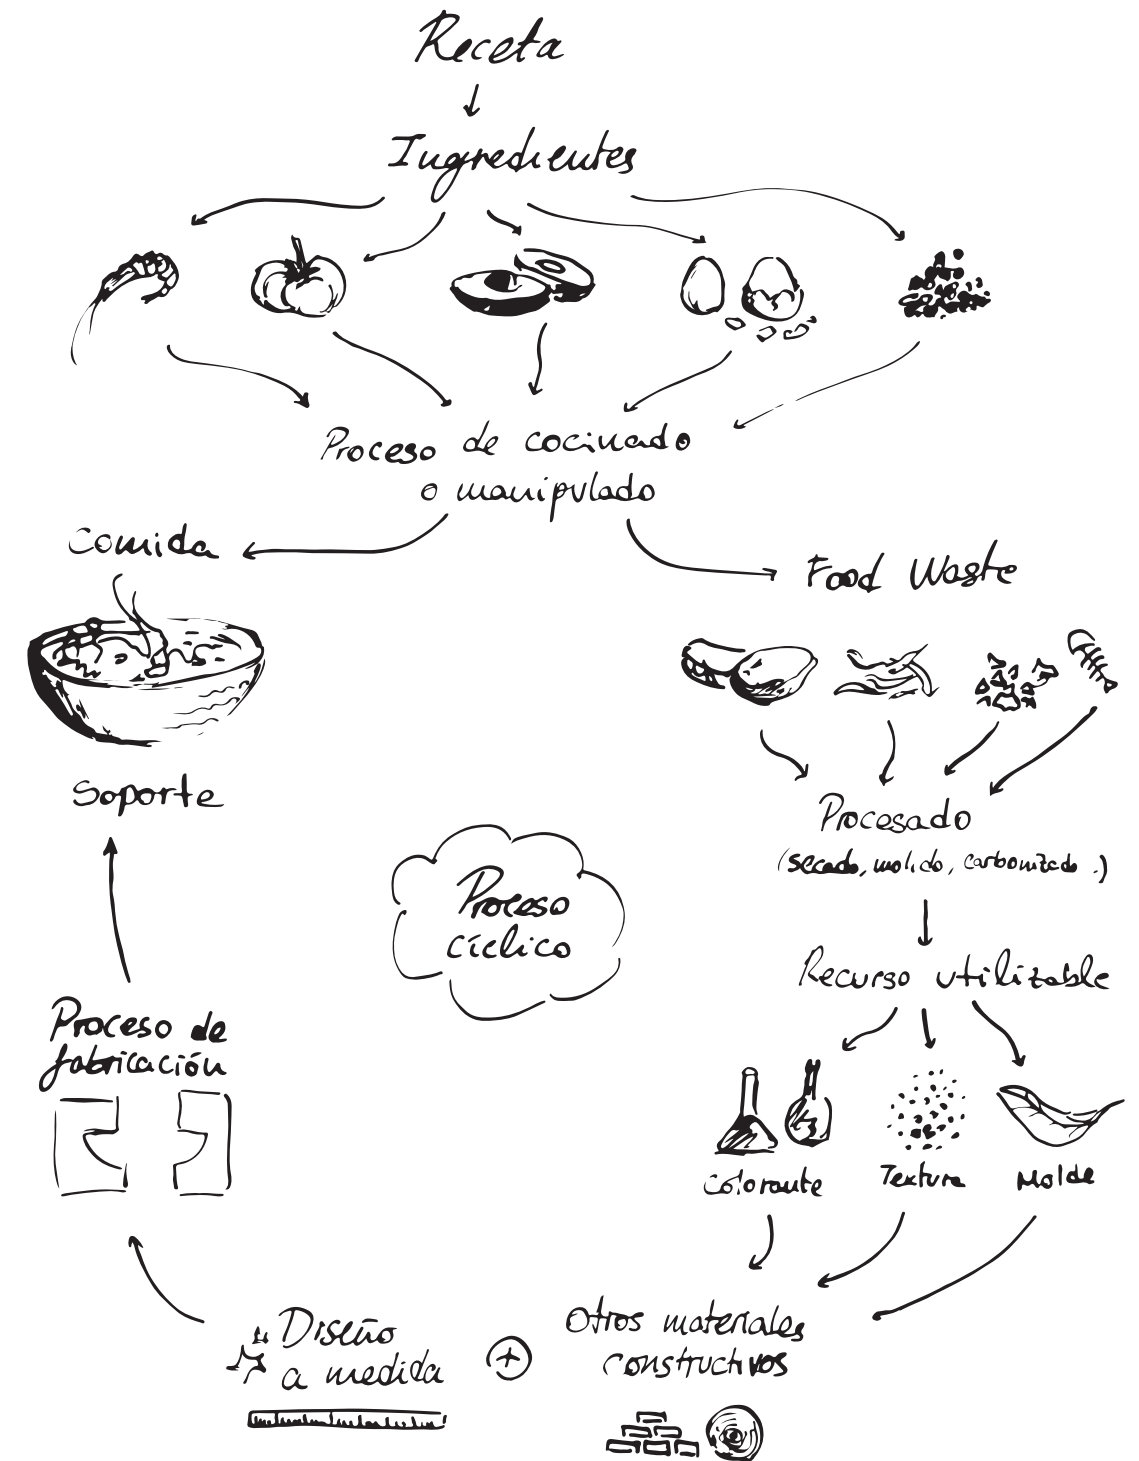 Receta
Ingredientes
Proceso de cocinado
o manipulado
Comida
Food Waste
Soporte
Procesado
(secado, molido, carbonizado..)
Proceso
cíclico
Recurso utilizable
Proceso de
fabricación
Colorante
Textura
Molde
Diseño
a medida
+
Otros materiales
constructivos